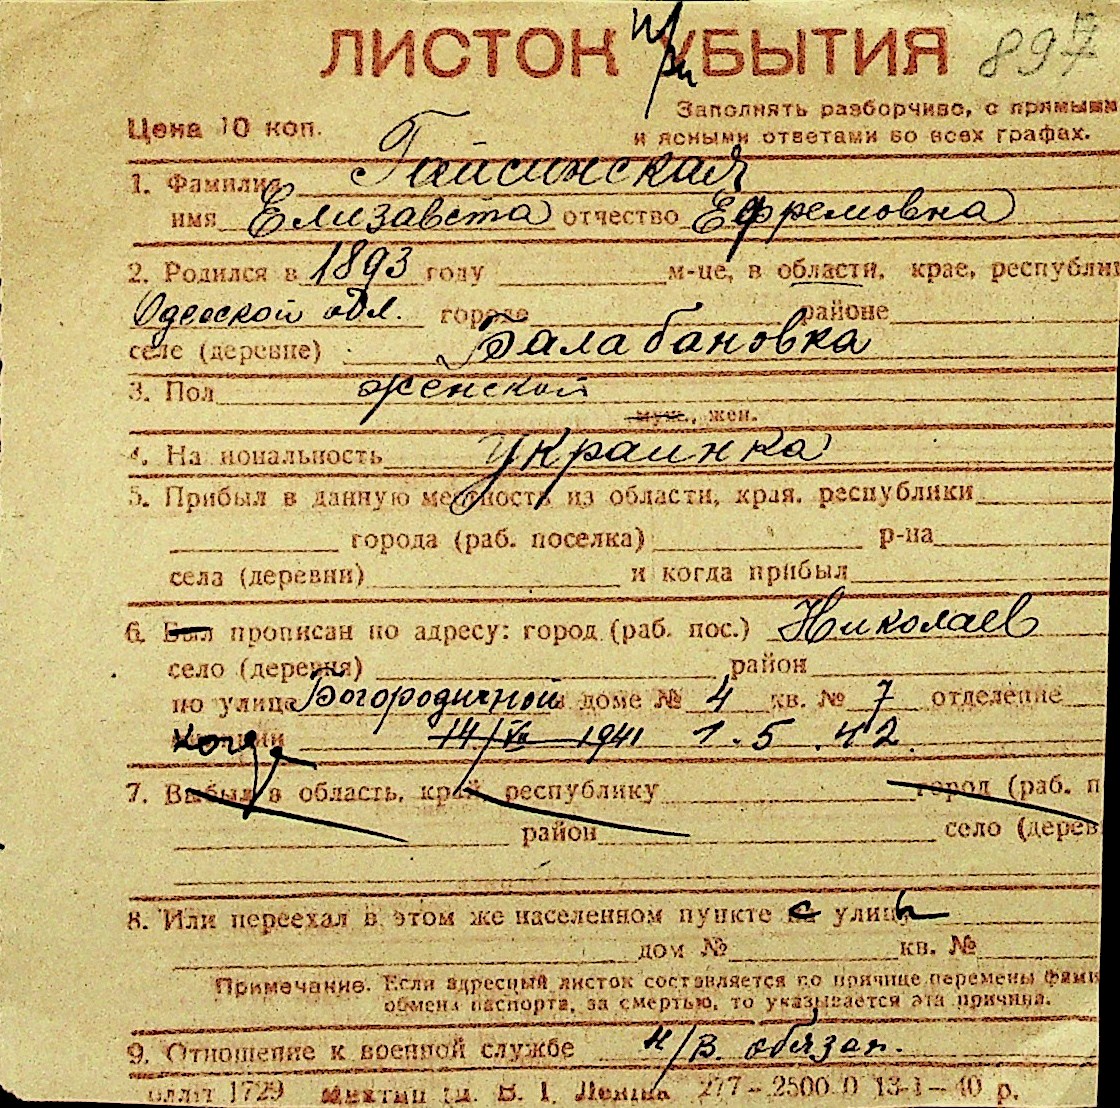 ЛИСТОК УБЫТИЯ 897
при
Заполнять разборчиво, с прямыми
Цена 10 коп. и ясными ответами во всех графах.
1. Фамилия Гайсинская
имя Елизавета отчество Ефремовна
2. Родился в 1893 году м-це, в области, крае, республи
Одесской обл. городе районе
селе (деревне) Балабановка
3. Пол женской
муж., жен.
4. Национальность украинка
5. Прибыл в данную местность из области, края, республики
города (раб. поселка) р-на
села (деревни) и когда прибыл
6. Был прописан по адресу: город (раб. пос.) Николаев
село (деревня) район
по улице Богородичной доме № 4 кв. № 7 отделение
когда 14/ 1941 1.5.42.
7. Выбыл в область, край, республику город (раб. п
район село (дерев
8. Или переехал в этом же населенном пункте с улицы
дом № кв. №
Примечание. Если адресный листок составляется по причине перемены фами
обмена паспорта, за смертью, то указывается эта причина.
9. Отношение к военной службе н/в. обязан.
1729 В. І. Леніна 277—2500 0 13-1—40 р.